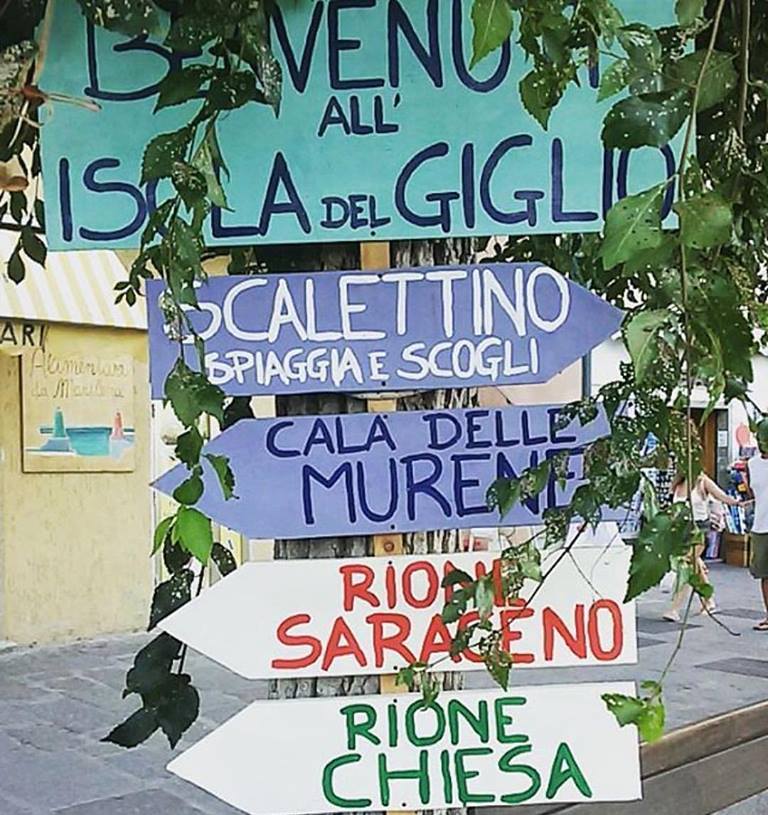 BENVENUTI
ALL'
ISOLA DEL GIGLIO
SCALETTINO
SPIAGGIA E SCOGLI
CALA DELLE
MURENE
RIONE
SARACENO
RIONE
CHIESA
ARI
Alimentari
da Marilena